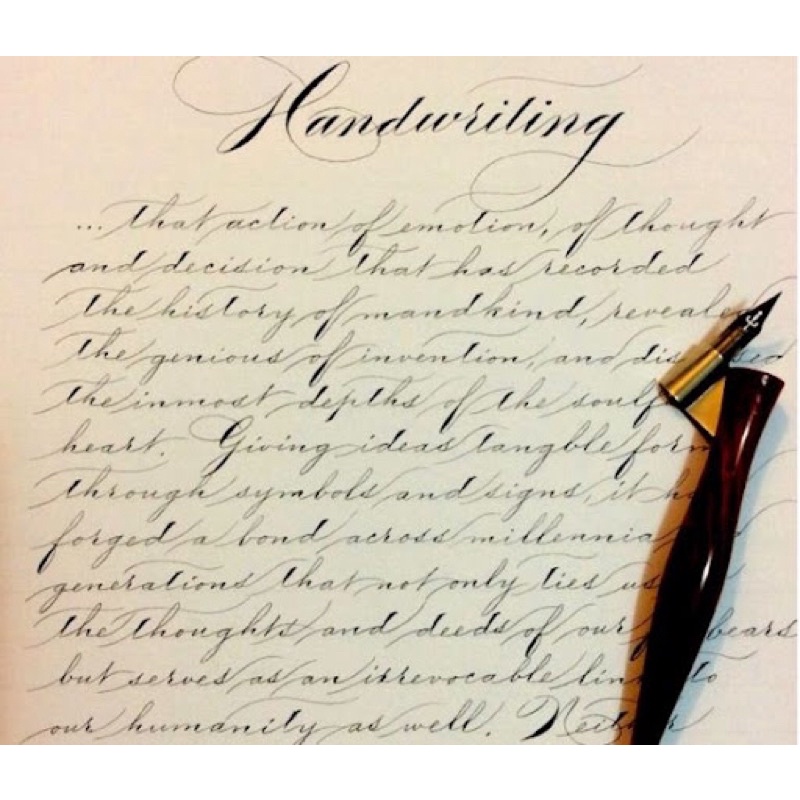 Handwriting
... that action of emotion, of thought
and decision that has recorded
the history of mandkind, revealed
the genious of invention, and
the inmost depths of the soulf
heart. Giving ideas tangble form
through symbols and signs, it
forged a bond across millennia
generations that not only ties us
the thoughts and deeds of our
but serves as an irrevocable link to
our humanity as well. Neither